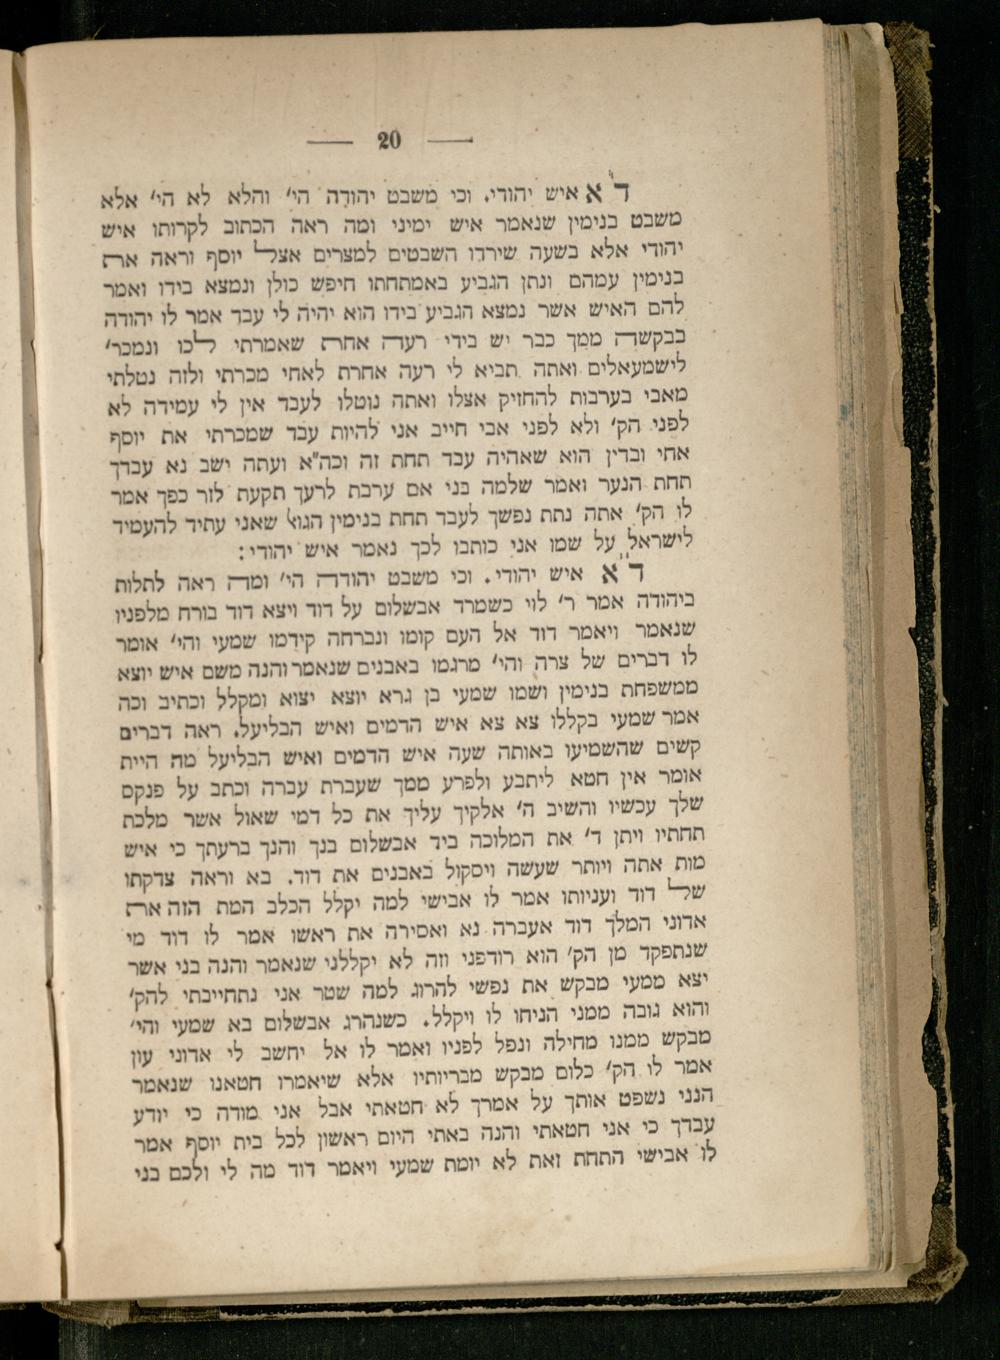 — 20 —
ד״א איש יהודי. וכי משבט יהודה הי׳ והלא לא הי׳ אלא
משבט בנימין שנאמר איש ימיני ומה ראה הכתוב לקרותו איש
יהודי אלא בשעה שירדו השבטים למצרים אצל יוסף וראה את
בנימין עמהם ונתן הגביע באמתחתו חיפש כולן ונמצא בידו ואמר
להם האיש אשר נמצא הגביע בידו הוא יהיה לי עבד אמר לו יהודה
בבקשה ממך כבר יש בידי רעה אחת שאמרתי לכו ונמכר׳
לישמעאלים ואתה תביא לי רעה אחרת לאחי מכרתי ולזה נטלתי
מאבי בערבות להחזיק אצלו ואתה נוטלו לעבד אין לי עמידה לא
לפני הק׳ ולא לפני אבי חייב אני להיות עבד שמכרתי את יוסף
אחי ובדין הוא שאהיה עבד תחת זה וכה״א ועתה ישב נא עבדך
תחת הנער ואמר שלמה בני אם ערבת לרעך תקעת לזר כפך אמר
לו הק׳ אתה נתת נפשך לעבד תחת בנימין הגואל שאני עתיד להעמיד
לישראל על שמו אני כותבו לכך נאמר איש יהודי :
ד״א איש יהודי. וכי משבט יהודה הי׳ ומה ראה לתלות
ביהודה אמר ר׳ לוי כשמרד אבשלום על דוד ויצא דוד בורח מלפניו
שנאמר ויאמר דוד אל העם קומו ונברחה קידמו שמעי והי׳ אומר
לו דברים של צרה והי׳ מרגמו באבנים שנאמר והנה משם איש יוצא
ממשפחת בנימין ושמו שמעי בן גרא יוצא יצוא ומקלל וכתיב וכה
אמר שמעי בקללו צא צא איש הדמים ואיש הבליעל. ראה דברים
קשים שהשמיעו באותה שעה איש הדמים ואיש הבליעל מה היית
אומר אין חטא ליתבע ולפרע ממך שעברת עברה וכתב על פנקס
שלך עכשיו והשיב ה׳ אלקיך עליך את כל דמי שאול אשר מלכת
תחתיו ויתן ד׳ את המלוכה ביד אבשלום בנך והנך ברעתך כי איש
מות אתה ויותר שעשה ויסקול באבנים את דוד. בא וראה צדקתו
של דוד ועניותו אמר לו אבישי למה יקלל הכלב המת הזה את
אדוני המלך דוד אעברה נא ואסירה את ראשו אמר לו דוד מי
שנתפקד מן הק׳ הוא רודפני וזה לא יקללני שנאמר והנה בני אשר
יצא ממעי מבקש את נפשי להרוג למה שטר אני נתחייבתי להק׳
והוא גובה ממני הניחו לו ויקלל. כשנהרג אבשלום בא שמעי והי׳
מבקש ממנו מחילה ונפל לפניו ואמר לו אל יחשב לי אדוני עון
אמר לו הק׳ כלום מבקש מבריותיו אלא שיאמרו חטאנו שנאמר
הנני נשפט אותך על אמרך לא חטאתי אבל אני מודה כי יודע
עבדך כי אני חטאתי והנה באתי היום ראשון לכל בית יוסף אמר
לו אבישי התחת זאת לא יומת שמעי ויאמר דוד מה לי ולכם בני